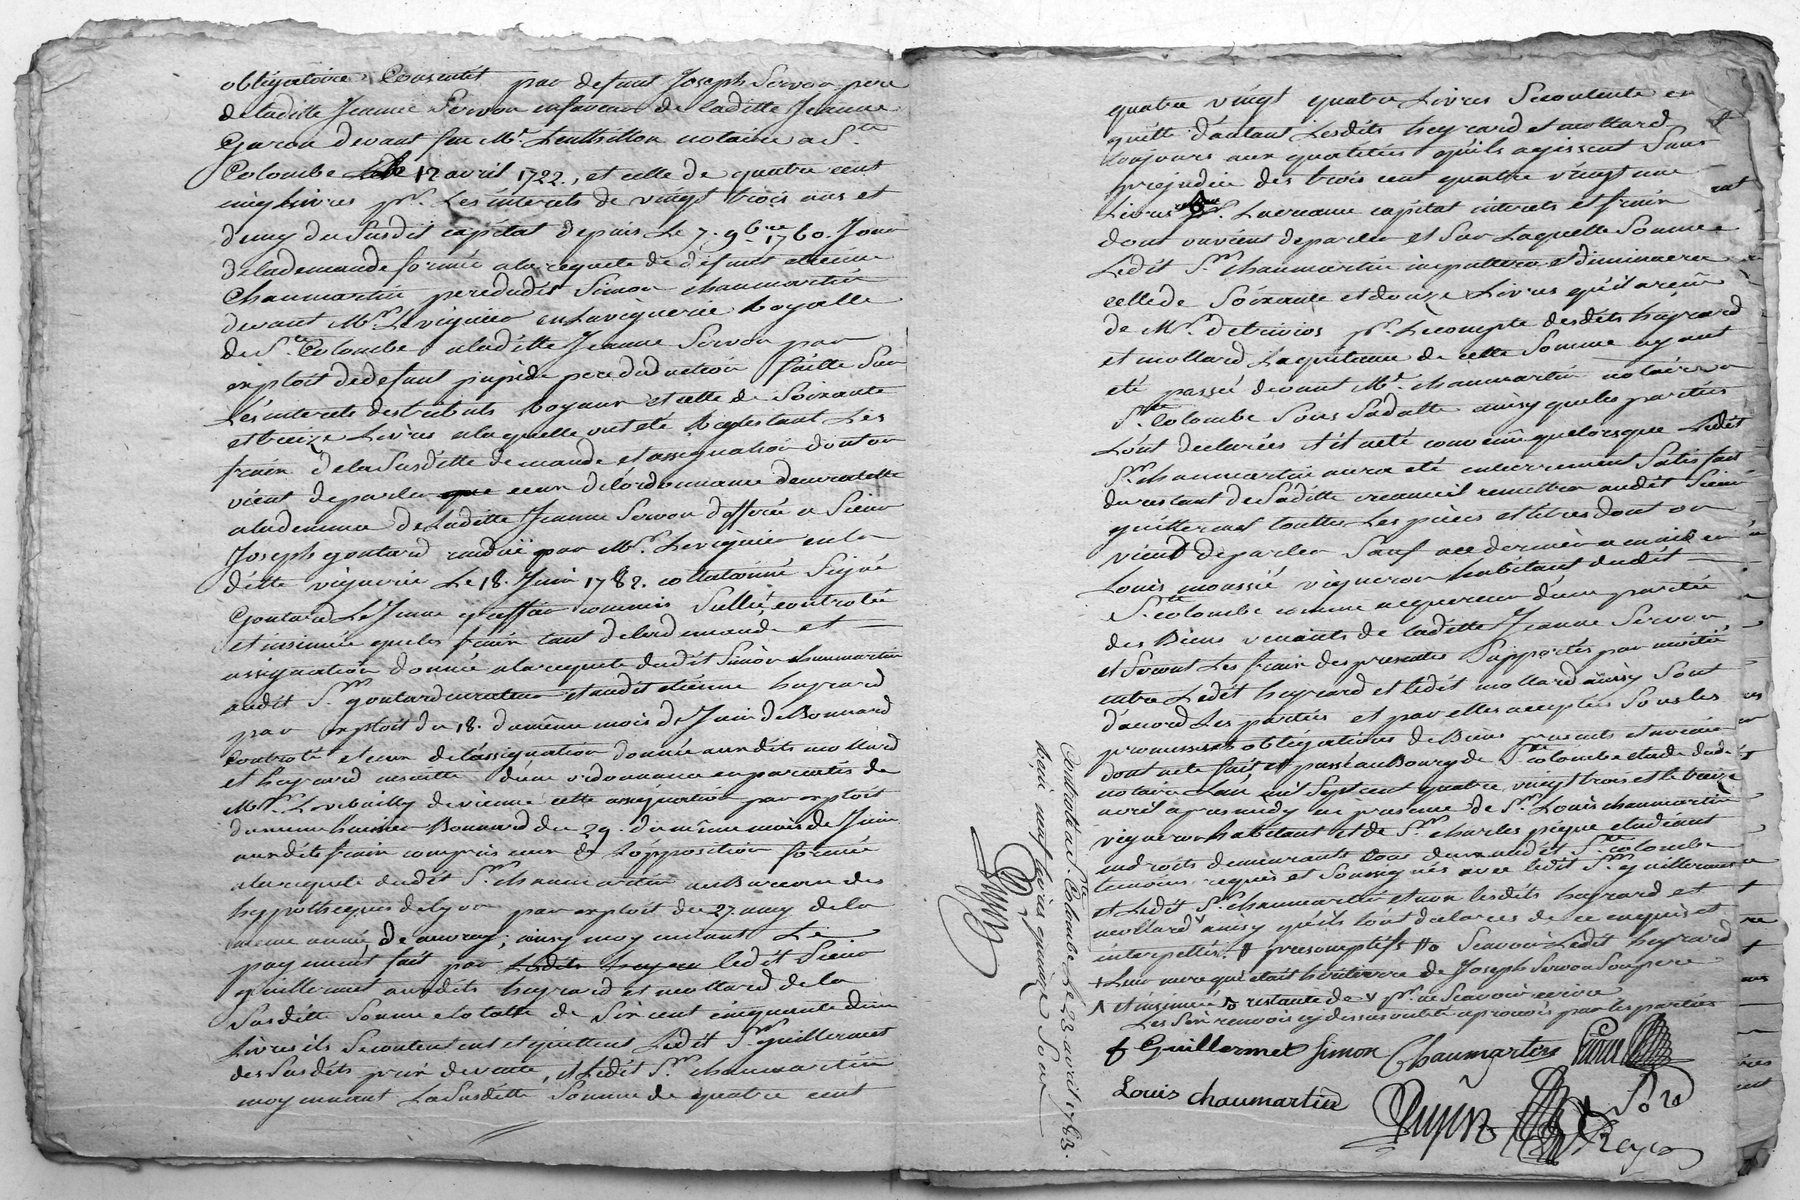 obligatoire Consentit par defunt Joseph Servon pere
de laditte Jeanne Servon en faveur de laditte Jeanne
Garon devant feu Me notaire a Ste
Colombe le 12 avril 1722, et celle de quatre cent
cinq livres pr. Les interets de vingt trois ans et
demy du Susdit capital depuis Le 7. 9bre 1760. Jour
de la demande formée a la requete de defunt etienne
Chaumartin pere dudit Simon chaumartin
devant Mr. Le viguier en La viguerie Royalle
de Ste Colombe a laditte Jeanne Servon par
exploit de defunt deduction faitte Sur
Les interets des tributs Royaux et celle de Soixante
et treize Livres a laquelle ont été Les
fraix de la Susditte demande et assignation dont on
vient de parler que ceux de l'ordonnance de curatelle
a la demence de Laditte Jeanne Servon defferée a Sieur
Joseph goutard rendue par Mr. Le viguier en la
ditte viguerie Le 18. Juin 1782. collationné Signé
Goutard Le Jeune greffier commis Sellée, controlée
et insinuée que les fraix tant de la demande et
assignation donnée a la requete dudit Simon chaumartin
audit Sr. goutard curateur et audit etienne heyrard
par exploit du 18. du même mois de Juin de Bonnard
Controlé et ceux de l'assignation donnée auxdits mollard
et heyrard ensuitte d'une ordonnance en parcatis de
Mr. Le vibailly de vienne cette assignation par exploit
du meme huissier Bonnard du 29. du même mois de Juin
auxdits fraix compris ceux de L'opposition formée
a la requete dudit Sr. chaumartin au Bureau des
hyppotheques de Lyon par exploit du 27. may de la
meme année, de auvray; ainsy moyennant Le
payement fait par ledit Sieur
guillermet auxdits heyrard et mollard de la
Susditte Somme totalle de Six cent cinquante deux
Livres ils Se contentent et quittent Ledit Sr. guillermet
des Susdits prix de vente, et Ledit Sr. chaumartin
moyennant La Susditte Somme de quatre cent
quatre vingt quatre Livres Se contente en
quitte d'autant Lesdits heyrard et mollard
toujours aux qualités qu'ils agissent Sans
prejudice des trois cent quatre vingt une
Livres pr. La creance capital interets et fraix
dont on vient de parler et Sur Laquelle Somme
Ledit Sr. chaumartin imputtera et diminuera
celle de Soixante et douze Livres qu'il a reçû
de Mr. detrivios pr. Le compte desdits heyrard
et mollard La quittance de cette Somme ayant
eté passée devant Me. chaumartin notaire a
Ste colombe Sous Sa datte ainsy que les parties
L'ont declarées et il a eté convenû que lorsque Ledit
Sr. chaumartin aura eté entierrement Satisfait
du restant de Saditte creance il remettra audit Sieur
guillermet touttes Les pièces et titres dont on
vient de parler Sauf a ce dernier a en aider
Louis moussié vigneron habitant audit
Ste colombe comme acquereur d'une partie
des Biens venants de laditte Jeanne Servon
et Seront Les fraix des presentes Supportés par moitié
entre Ledit heyrard et ledit mollard ainsy Sont
d'acord Les parties et par elles acceptées Sous les
promesses obligations de Biens presents et avenir
dont acte fait et passé au Bourg de Ste colombe etude dudit
notaire L'an mil Sept cent quatre vingt trois et le treize
avril apres midy en presence de Sr. Louis chaumartin
vigneron habitant et de Sr. charles pegue etudiant
en droits demeurants tous deux audit Ste colombe
temoins requis et Soussignés avec ledit Sr. guillermet
et Ledit Sr. chaumartin et non lesdits heyrard et
mollard ainsy qu'ils l'ont declarées de ce enquis et
interpellés. # presomptifs #o Scavoir Ledit heyrard
+ Leur mere qui etait héritiere de Joseph Servon Son pere
Λ et insinuée restante de v pr. ne Scavoir ecrire
Les Six renvois cy dessus ont été aprouvés par les parties
f Guillermet Simon Chaumartin
Louis chaumartin
Controlé a Ste. Colombe Le 23 avril 1783.
Reçû neuf livres quinze Sols